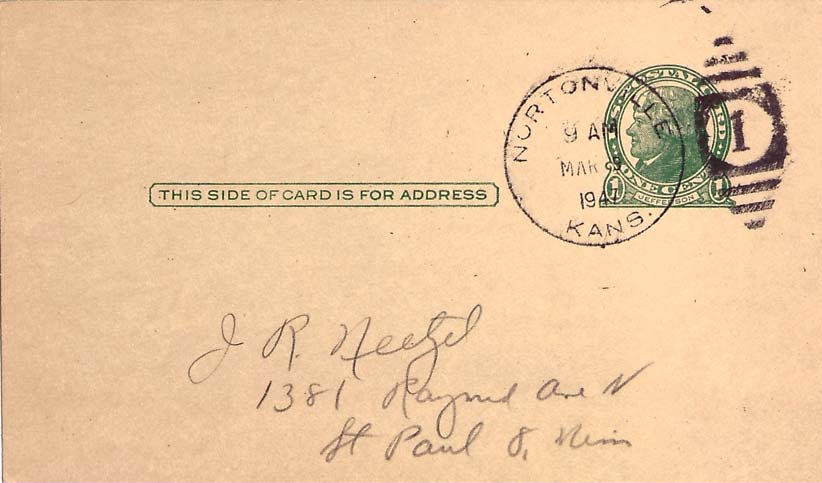 U.S. POSTAL CARD.
NORTONVILLE
9 AM
MAR
194
KANS.
1
1 ONE CENT 1
JEFFERSON
THIS SIDE OF CARD IS FOR ADDRESS
J R. Neetzel
1381 Raymond Ave N
St Paul 8, Minn